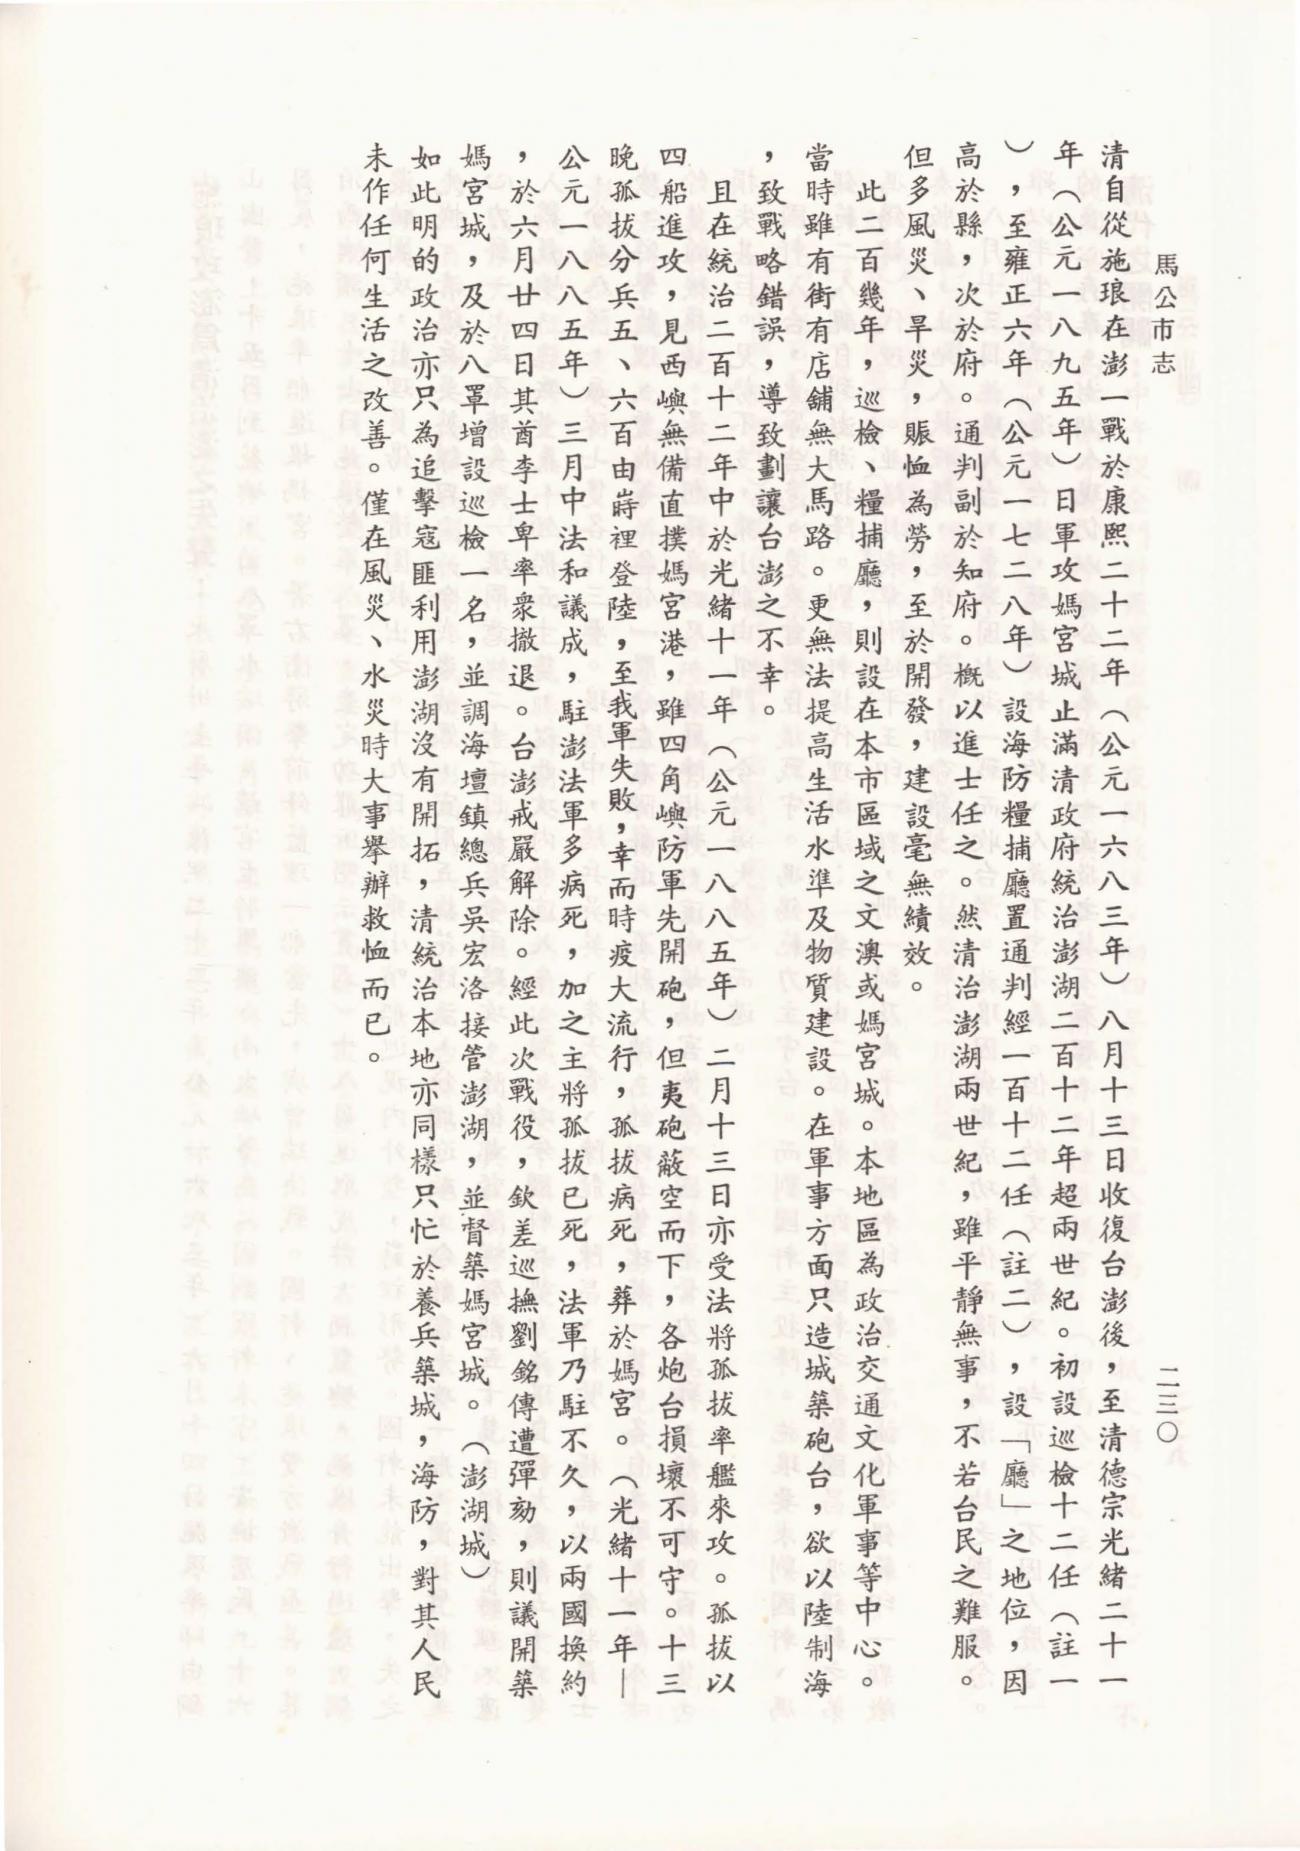 馬公市志
二三〇
清自從施琅在澎一戰於康熙二十二年（公元一六八三年）八月十三日收復台澎後，至清德宗光緒二十一
年（公元一八九五年）日軍攻媽宮城止滿清政府統治澎湖二百十二年超兩世紀。初設巡檢十二任（註一
），至雍正六年（公元一七二八年）設海防糧捕廳置通判經一百十二任（註二），設「廳」之地位，因
高於縣，次於府。通判副於知府。概以進士任之。然清治澎湖兩世紀，雖平靜無事，不若台民之難服。
但多風災、旱災，賑恤為勞，至於開發，建設毫無績效。
此二百幾年，巡檢、糧捕廳，則設在本市區域之文澳或媽宮城。本地區為政治交通文化軍事等中心。
當時雖有街有店舖無大馬路。更無法提高生活水準及物質建設。在軍事方面只造城築砲台，欲以陸制海
，致戰略錯誤，導致劃讓台澎之不幸。
且在統治二百十二年中於光緒十一年（公元一八八五年）二月十三日亦受法將孤拔率艦來攻。孤拔以
四船進攻，見西嶼無備直撲媽宮港，雖四角嶼防軍先開砲，但夷砲蔽空而下，各炮台損壞不可守。十三
晚孤拔分兵五、六百由嵵裡登陸，至我軍失敗，幸而時疫大流行，孤拔病死，葬於媽宮。（光緒十一年—
公元一八八五年）三月中法和議成，駐澎法軍多病死，加之主將孤拔已死，法軍乃駐不久，以兩國換約
，於六月廿四日其酋李士卑率衆撤退。台澎戒嚴解除。經此次戰役，欽差巡撫劉銘傳遭彈劾，則議開築
媽宮城，及於八罩增設巡檢一名，並調海壇鎮總兵吳宏洛接管澎湖，並督築媽宮城。（澎湖城）
如此明的政治亦只為追擊寇匪利用澎湖沒有開拓，清統治本地亦同樣只忙於養兵築城，海防，對其人民
未作任何生活之改善。僅在風災、水災時大事擧辦救恤而已。